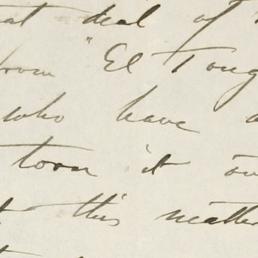 at deal of
from "El Toug
who have a
torn it ou
t this matte